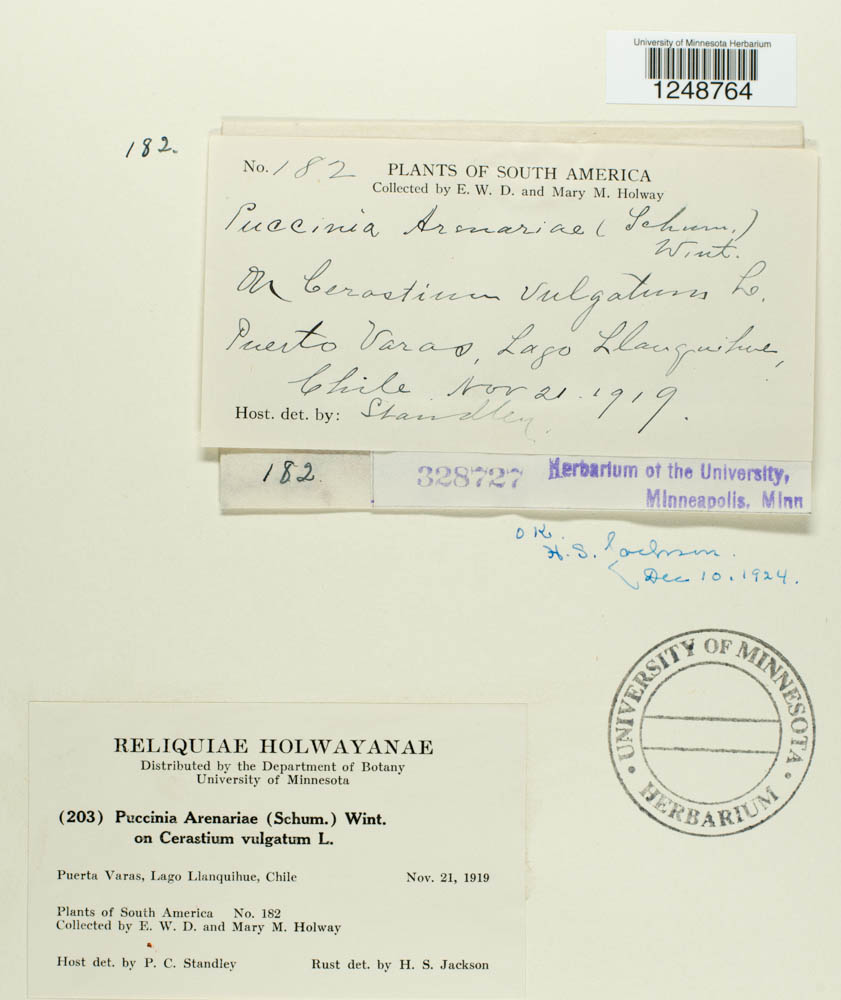 University of Minnesota Herbarium
1248764
182.
No. 182 PLANTS OF SOUTH AMERICA
Collected by E. W. D. and Mary M. Holway
Puccinia Arenariae (Schum.)
Wint.
On Cerastium vulgatum L.
Puerto Varas, Lago Llanquihue,
Chile Nov 21. 1919.
Host. det. by: Standley.
182.
328727 Herbarium of the University,
Minneapolis, Minn
OK.
H. S. Jackson.
Dec 10. 1924.
UNIVERSITY OF MINNESOTA
HERBARIUM
RELIQUIAE HOLWAYANAE
Distributed by the Department of Botany
University of Minnesota
(203) Puccinia Arenariae (Schum.) Wint.
on Cerastium vulgatum L.
Puerta Varas, Lago Llanquihue, Chile Nov. 21, 1919
Plants of South America No. 182
Collected by E. W. D. and Mary M. Holway
Host det. by P. C. Standley Rust det. by H. S. Jackson